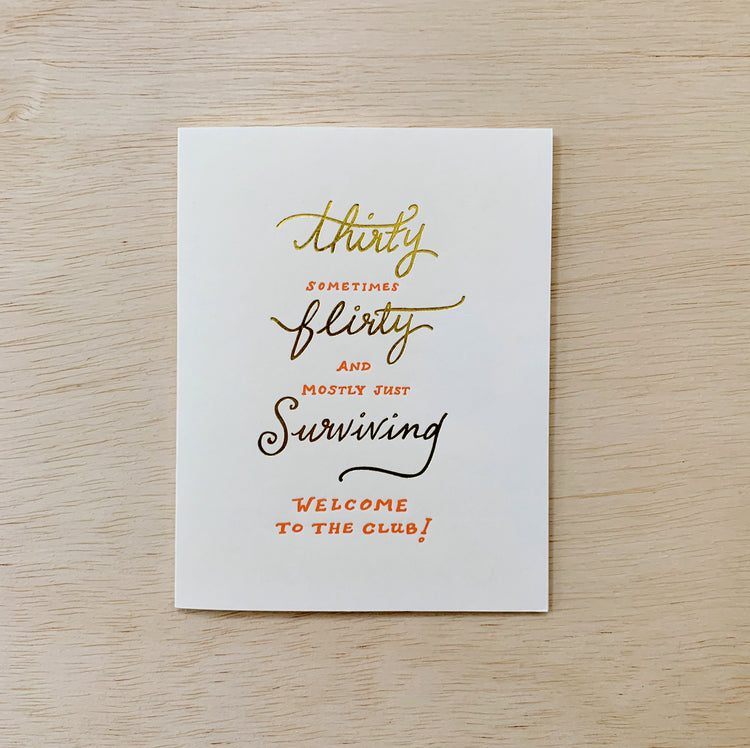 thirty
SOMETIMES
flirty
AND
MOSTLY JUST
Surviving
WELCOME
TO THE CLUB!